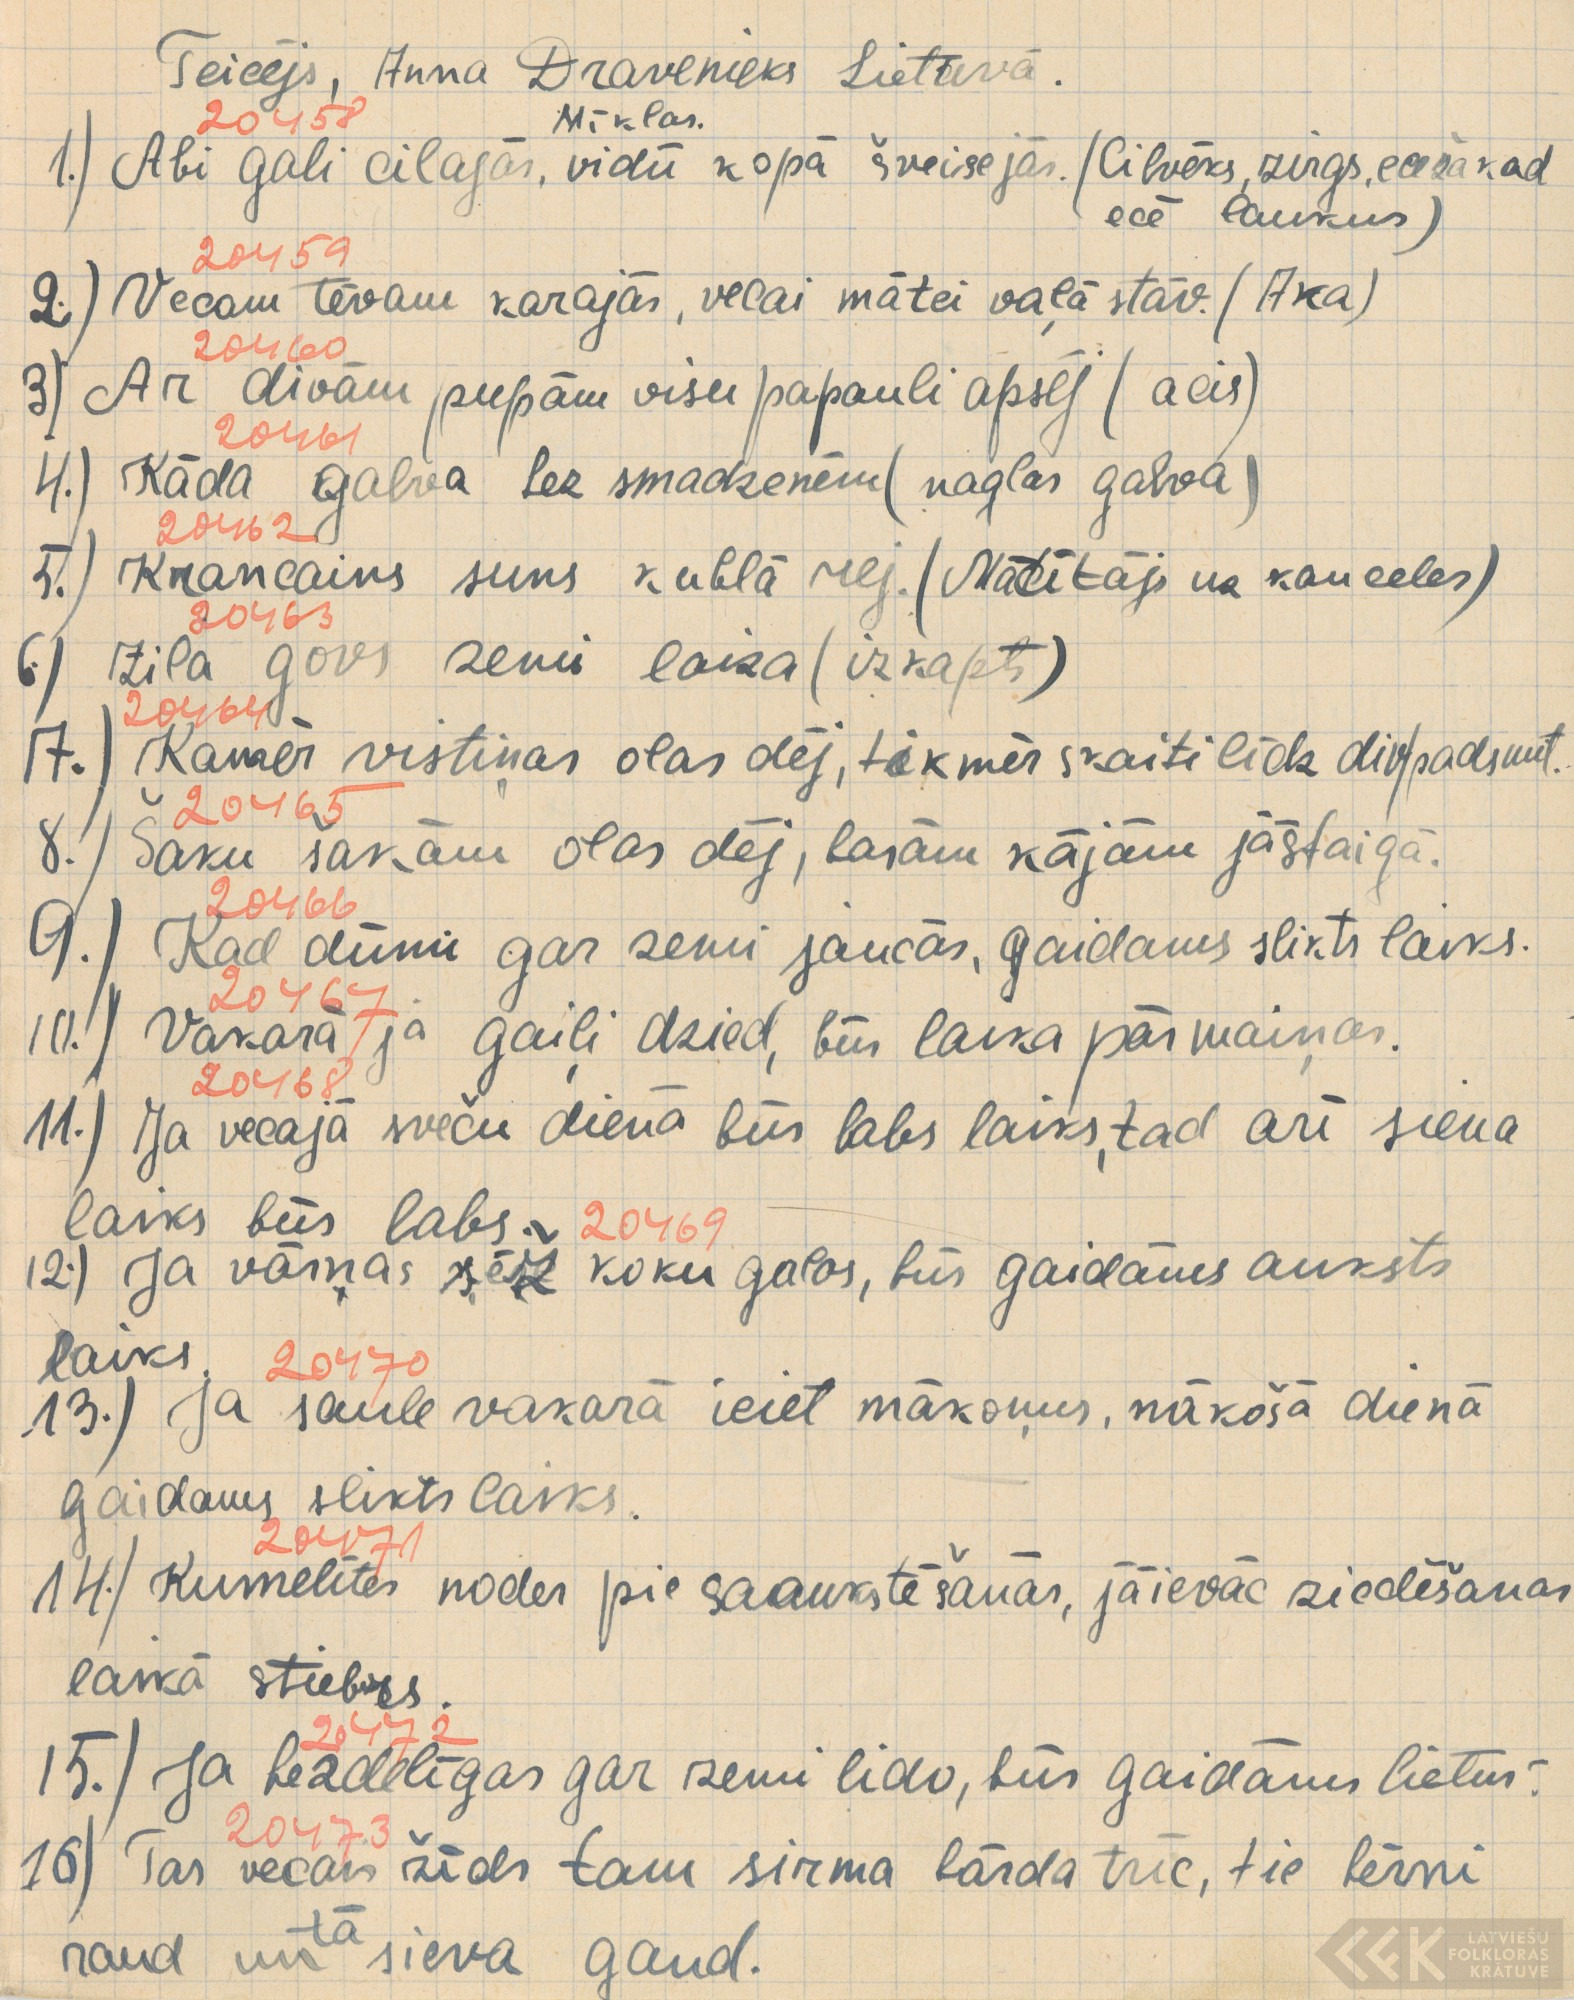 Teicējs, Anna Dravenieks Lietavā.
20458 Mīklas.
1.) Abi gali cilajās, vidū kopā šveisejās. (Cilvēks, zirgs, eceša kad
ecē laukus)
20459
2.) Vecam tēvam karajās, vecai mātei vaļā stāv. (Aka)
20460
3) Ar divām pupām visu papauli apsēj (acis)
20461
4.) Kāda galva bez smadzenēm (naglas galva)
20462
5.) Krancains suns kublā rej. (Mācītājs uz kanceles)
20463
6.) Zila govs zemi laiza (izkapts)
20464
7.) Kamēr vistiņas olas dēj, tikmēr skaiti līdz divpadsmit.
20465
8.) Šaku šakām olas dēj, basām kājām jāstaigā.
20466
9.) Kad dūmi gar zemi jaucās, gaidams slikts laiks.
20467
10.) Vakarā ja gaiļi dzied, būs laika pārmaiņas.
20468
11.) Ja vecajā sveču dienā būs labs laiks, tad arī siena
laiks būs labs. 20469
12.) Ja vārņas sēž koku galos, būs gaidāms auksts
laiks. 20470
13.) Ja saule vakarā ieiet mākoņus, nākošā dienā
gaidams slikts laiks.
20471
14.) Kumelītes noder pie saaukstēšanās, jāievāc ziedēšanas
laikā
20472
15.) Ja bezdelīgas gar zemi lido, būs gaidāms lietus.
20473
16) Tas vecais žīds tam sirma bārda trīc, tie bērni
raud un tā sieva gaud.
LATVIEŠU
FOLKLORAS
KRĀTUVE